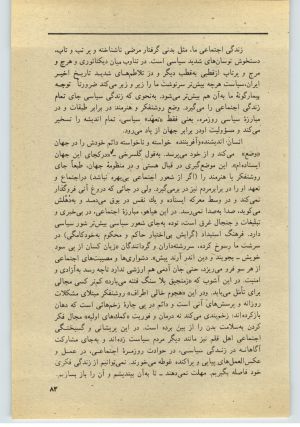 زندگی اجتماعی ما، مثل بدنی گرفتار مرضی ناشناخته و پر تب و تاب،
دستخوش نوسان‌های شدید سیاسی است. در تناوب میان دیکتاتوری و هرج و
مرج و پرتاب ازقطبی به‌قطب دیگر و در تلاطم‌های شدید تاریخ اخیر
ایران، سیاست هرچه بیش‌تر سرنوشت ما را زیر و زبر می‌کند ضرورتاً توجه
بیمارگونهٔ ما به‌آن هم بیش‌تر می‌شود. به‌نحوی که زندگی سیاسی جای تمام
زندگی اجتماعی را می‌گیرد. وضع روشنفکر و هنرمند در برابر طبقات و در
مبارزهٔ سیاسی روزمره، یعنی فقط «تعهد» سیاسی، تمام اندیشه را تسخیر
می‌کند و مسؤولیت او در برابر جهان از یاد می‌رود.
انسان اندیشنده و آفریننده خواسته و ناخواسته دائم خودش را در جهان
«وضع» می‌کند و از خود می‌پرسد، به‌قول گلسرخی «در کجای این جهان
ایستاده‌ام». این موضع‌گیری در قبال هستی و در منظومهٔ جهان، طبعاً جای
روشنفکر یا هنرمند را (اگر از شعور اجتماعی بی‌بهره نباشد) در اجتماع و
تعهد او را در برابر مردم نیز در برمی‌گیرد. ولی در جائی که دروغ آنی فروگذار
نمی‌کند و در وسط معرکه ایستاده و یک نفس در بوق می‌دمد و به‌دهلش
می‌کوبد، صدا به‌صدا نمی‌رسد. در این هیاهو، مبارزهٔ اجتماعی، در بی‌خبری و
تبلیغات و جنجال غرق است، توده به‌جای شعور سیاسی بیش‌تر شور سیاسی
دارد. فرهنگ استبداد (گرایش بی‌اختیار حاکم و محکوم به‌خودکامگی) در
سرشت ما رسوخ کرده، سررشته‌داران و گردانندگان هرزبان کسان از بی سود
خویش بجویند و دین اندر آرند پیش، دشواری‌ها و مصیبت‌های اجتماعی
از هر سو فرو می‌ریزد، حتی جان آدمی هم ارزشی ندارد ناچه رسد به‌آزادی و
امنیت. در این آشوب که «زمنجنیق بلا سنگ فتنه می‌بارد» کم‌تر کسی مجالی
برای تأمل می‌یابد. ودر این «هجوم خالی اطراف» روشنفکر مبتلای مشکلات
روزانه و پرسش‌های آنی است و دائم در پی چارهٔ زخم‌هائی است که دهان
بازکرده‌اند، زخم‌بندی می‌کند نه درمان و فوریت «کمک‌های اولیه» مجال فکر
کردن به‌سلامت بدن را از بین برده است. در این پریشانی و گسیختگی
اجتماعی اهل قلم نیز مانند دیگر مردم سیاست زده‌اند و به‌جای مشارکت
آگاهانه در زندگی سیاسی، در حوادث روزمرهٔ اجتماعی، در عمل و
عکس‌العمل‌های پیاپی و پراکنده غوطه می‌خورند. نمی‌توانیم از زندگی فکری
خود فاصله بگیریم. مهلت نمی‌دهند - تا به‌آن بیندیشیم و آن را باز بسازیم.
۸۳